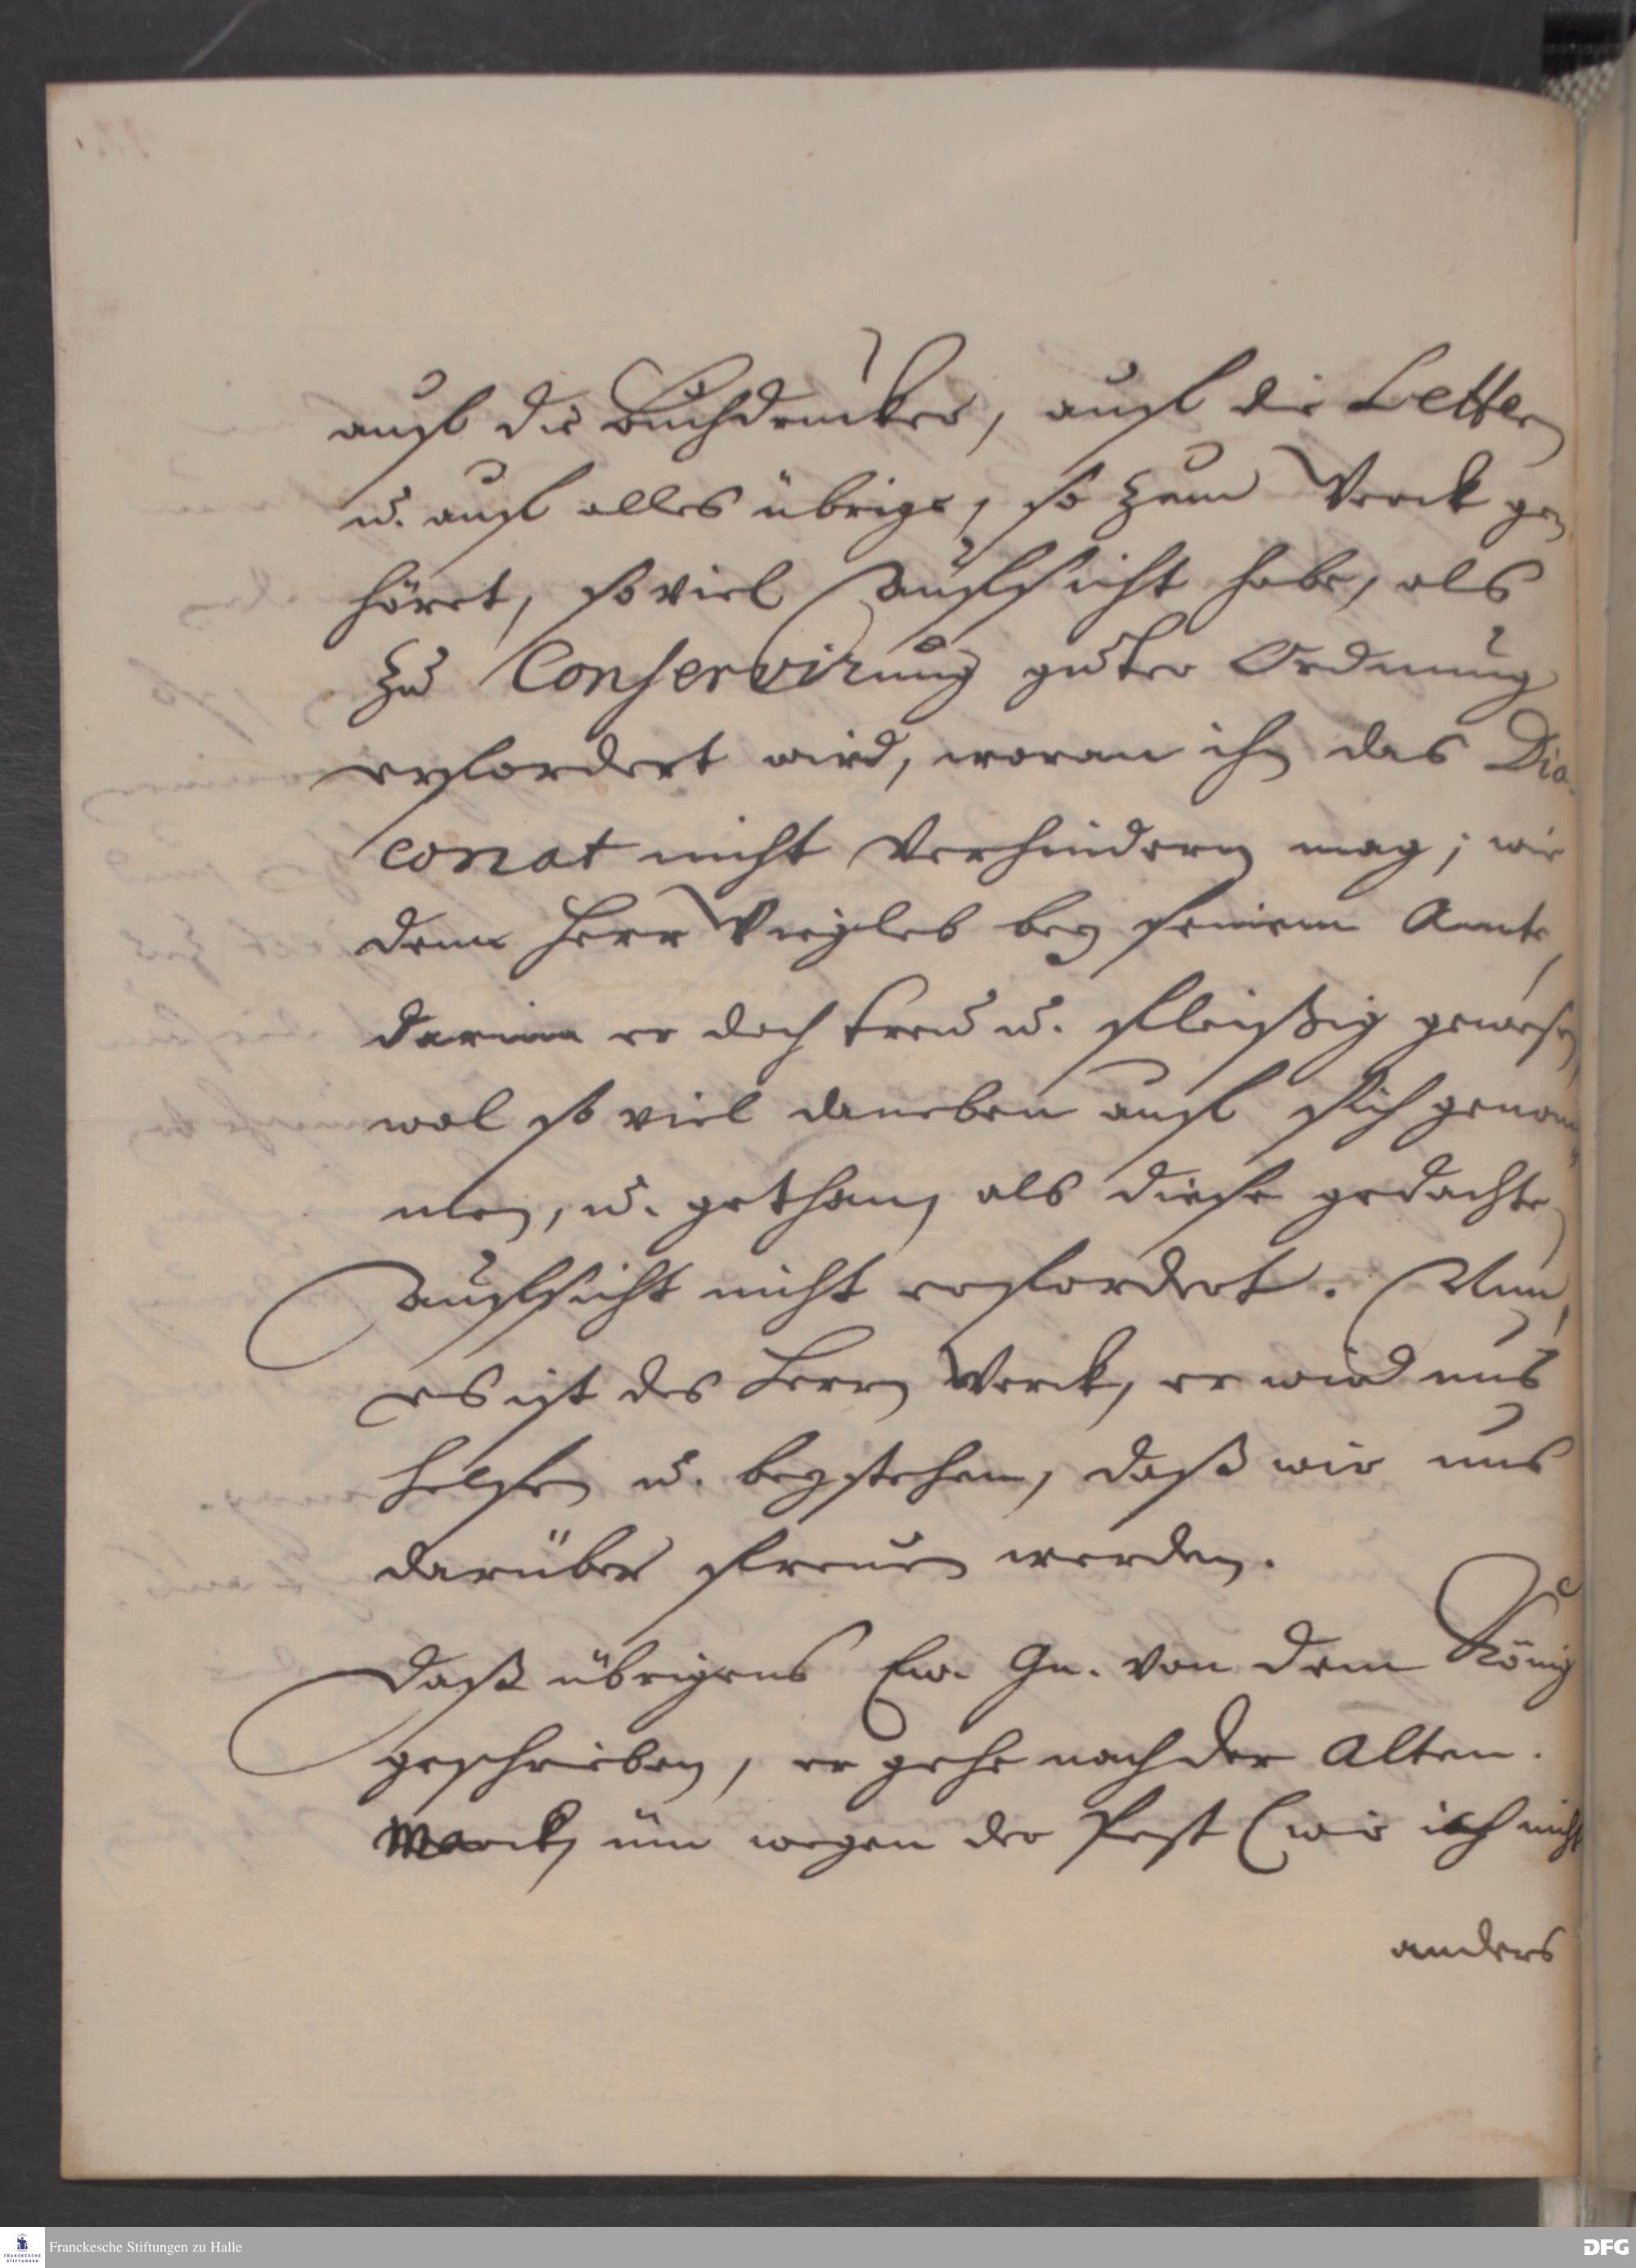 auf die Buchdrucker, auf die Lettern
u. auf alles übrige, so zum Werck ge¬
höret, so viel Aufsicht habe, als
zu Conservirung guter Ordnung
erfordert wird, woran ihn das Dia¬
conat nicht verhindern mag; wie
denn Herr Wiegleb bey seinem Amte,
darinn er doch treu u. fleißig gewesen,
wol so viel daneben auf sich genom¬
men, u. gethan, als diese gedachte
Aufsicht nicht erfordert. Nun,
es ist des Herrn Werck, er wird uns
helfen u. beystehen, daß wir uns
darüber freuen werden.
Daß übrigens Ew. Gn. von dem König
geschrieben, er gehe nach der Alten¬
Marck, üm wegen der Pest (wie ich nicht
anders
Franckesche Stiftungen zu Halle
DFG
FRANCKESCHE
STIFTUNGEN